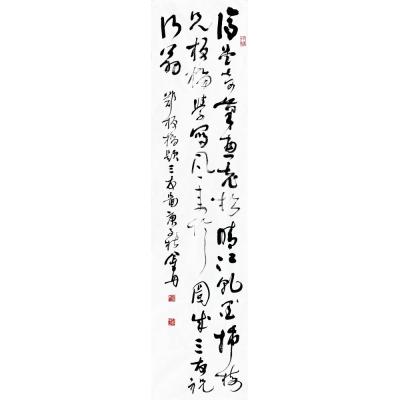 復堂奇筆畫老松晴江乾墨插梅
兄板橋學寫風來竹圖成三友祝
何翁 鄭板橋題三友圖庚子秋